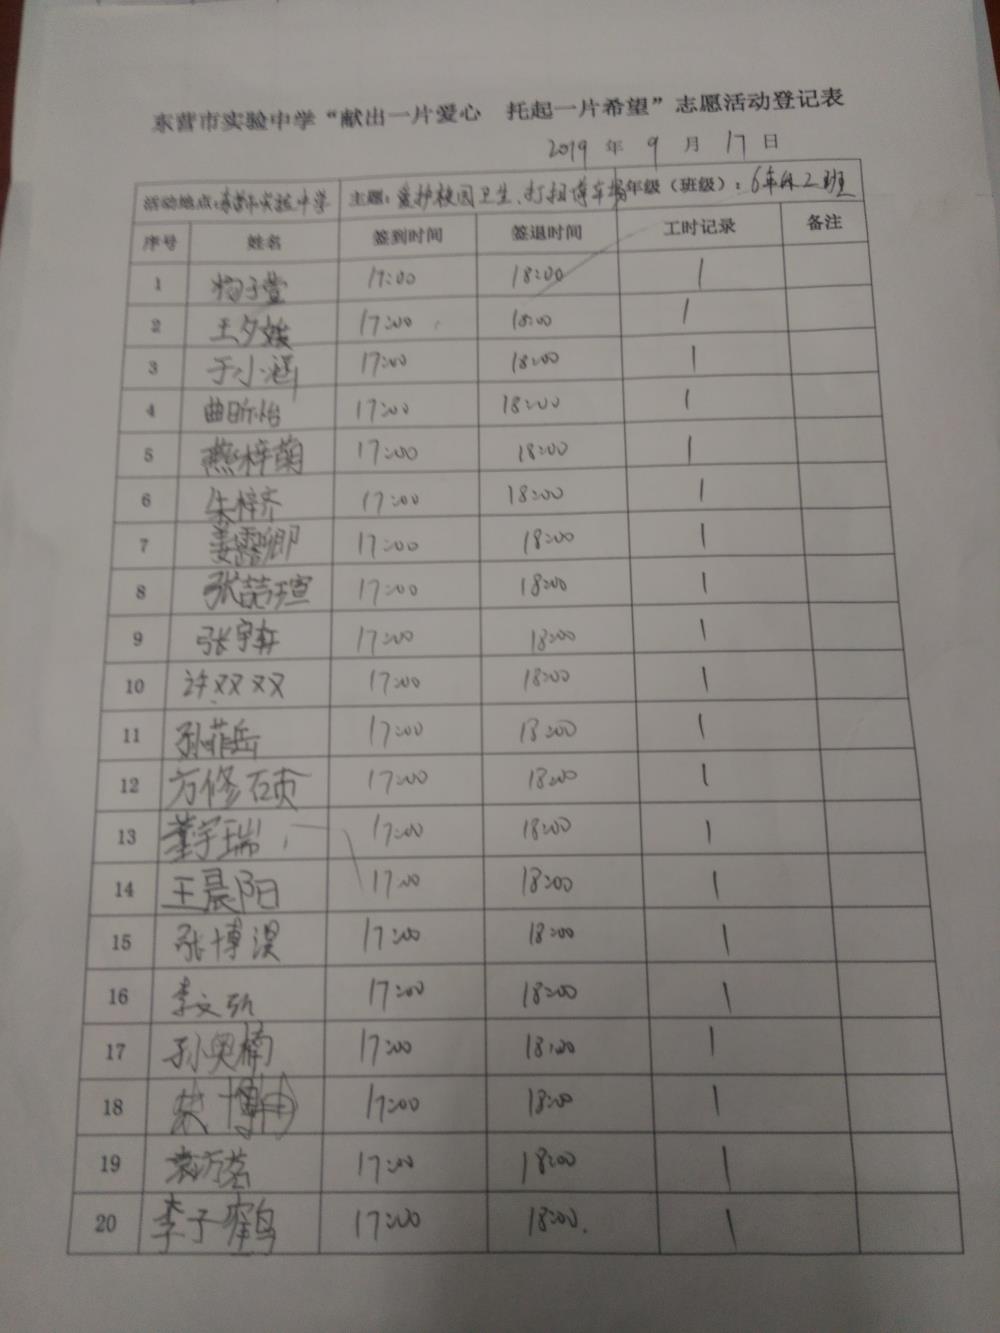 东营市实验中学“献出一片爱心 托起一片希望”志愿活动登记表
2019 年 9 月 17 日
活动地点:东营市实验中学 主题:爱护校园卫生、打扫停车场 年级(班级):6年级2班
序号 姓名 签到时间 签退时间 工时记录 备注
1 子萱 17:00 18:00 1
2 王夕媛 17:00 18:00 1
3 于小涵 17:00 18:00 1
4 曲昕怡 17:00 18:00 1
5 燕梓菊 17:00 18:00 1
6 朱梓齐 17:00 18:00 1
7 姜露卿 17:00 18:00 1
8 张喆瑄 17:00 18:00 1
9 张宇轩 17:00 18:00 1
10 许双双 17:00 18:00 1
11 孙菲岳 17:00 18:00 1
12 方修硕 17:00 18:00 1
13 董宇瑞 17:00 18:00 1
14 王晨阳 17:00 18:00 1
15 张博 17:00 18:00 1
16 李文 17:00 18:00 1
17 孙奥楠 17:00 18:00 1
18 博 17:00 18:00 1
19 袁茗 17:00 18:00 1
20 李子鹤 17:00 18:00 1